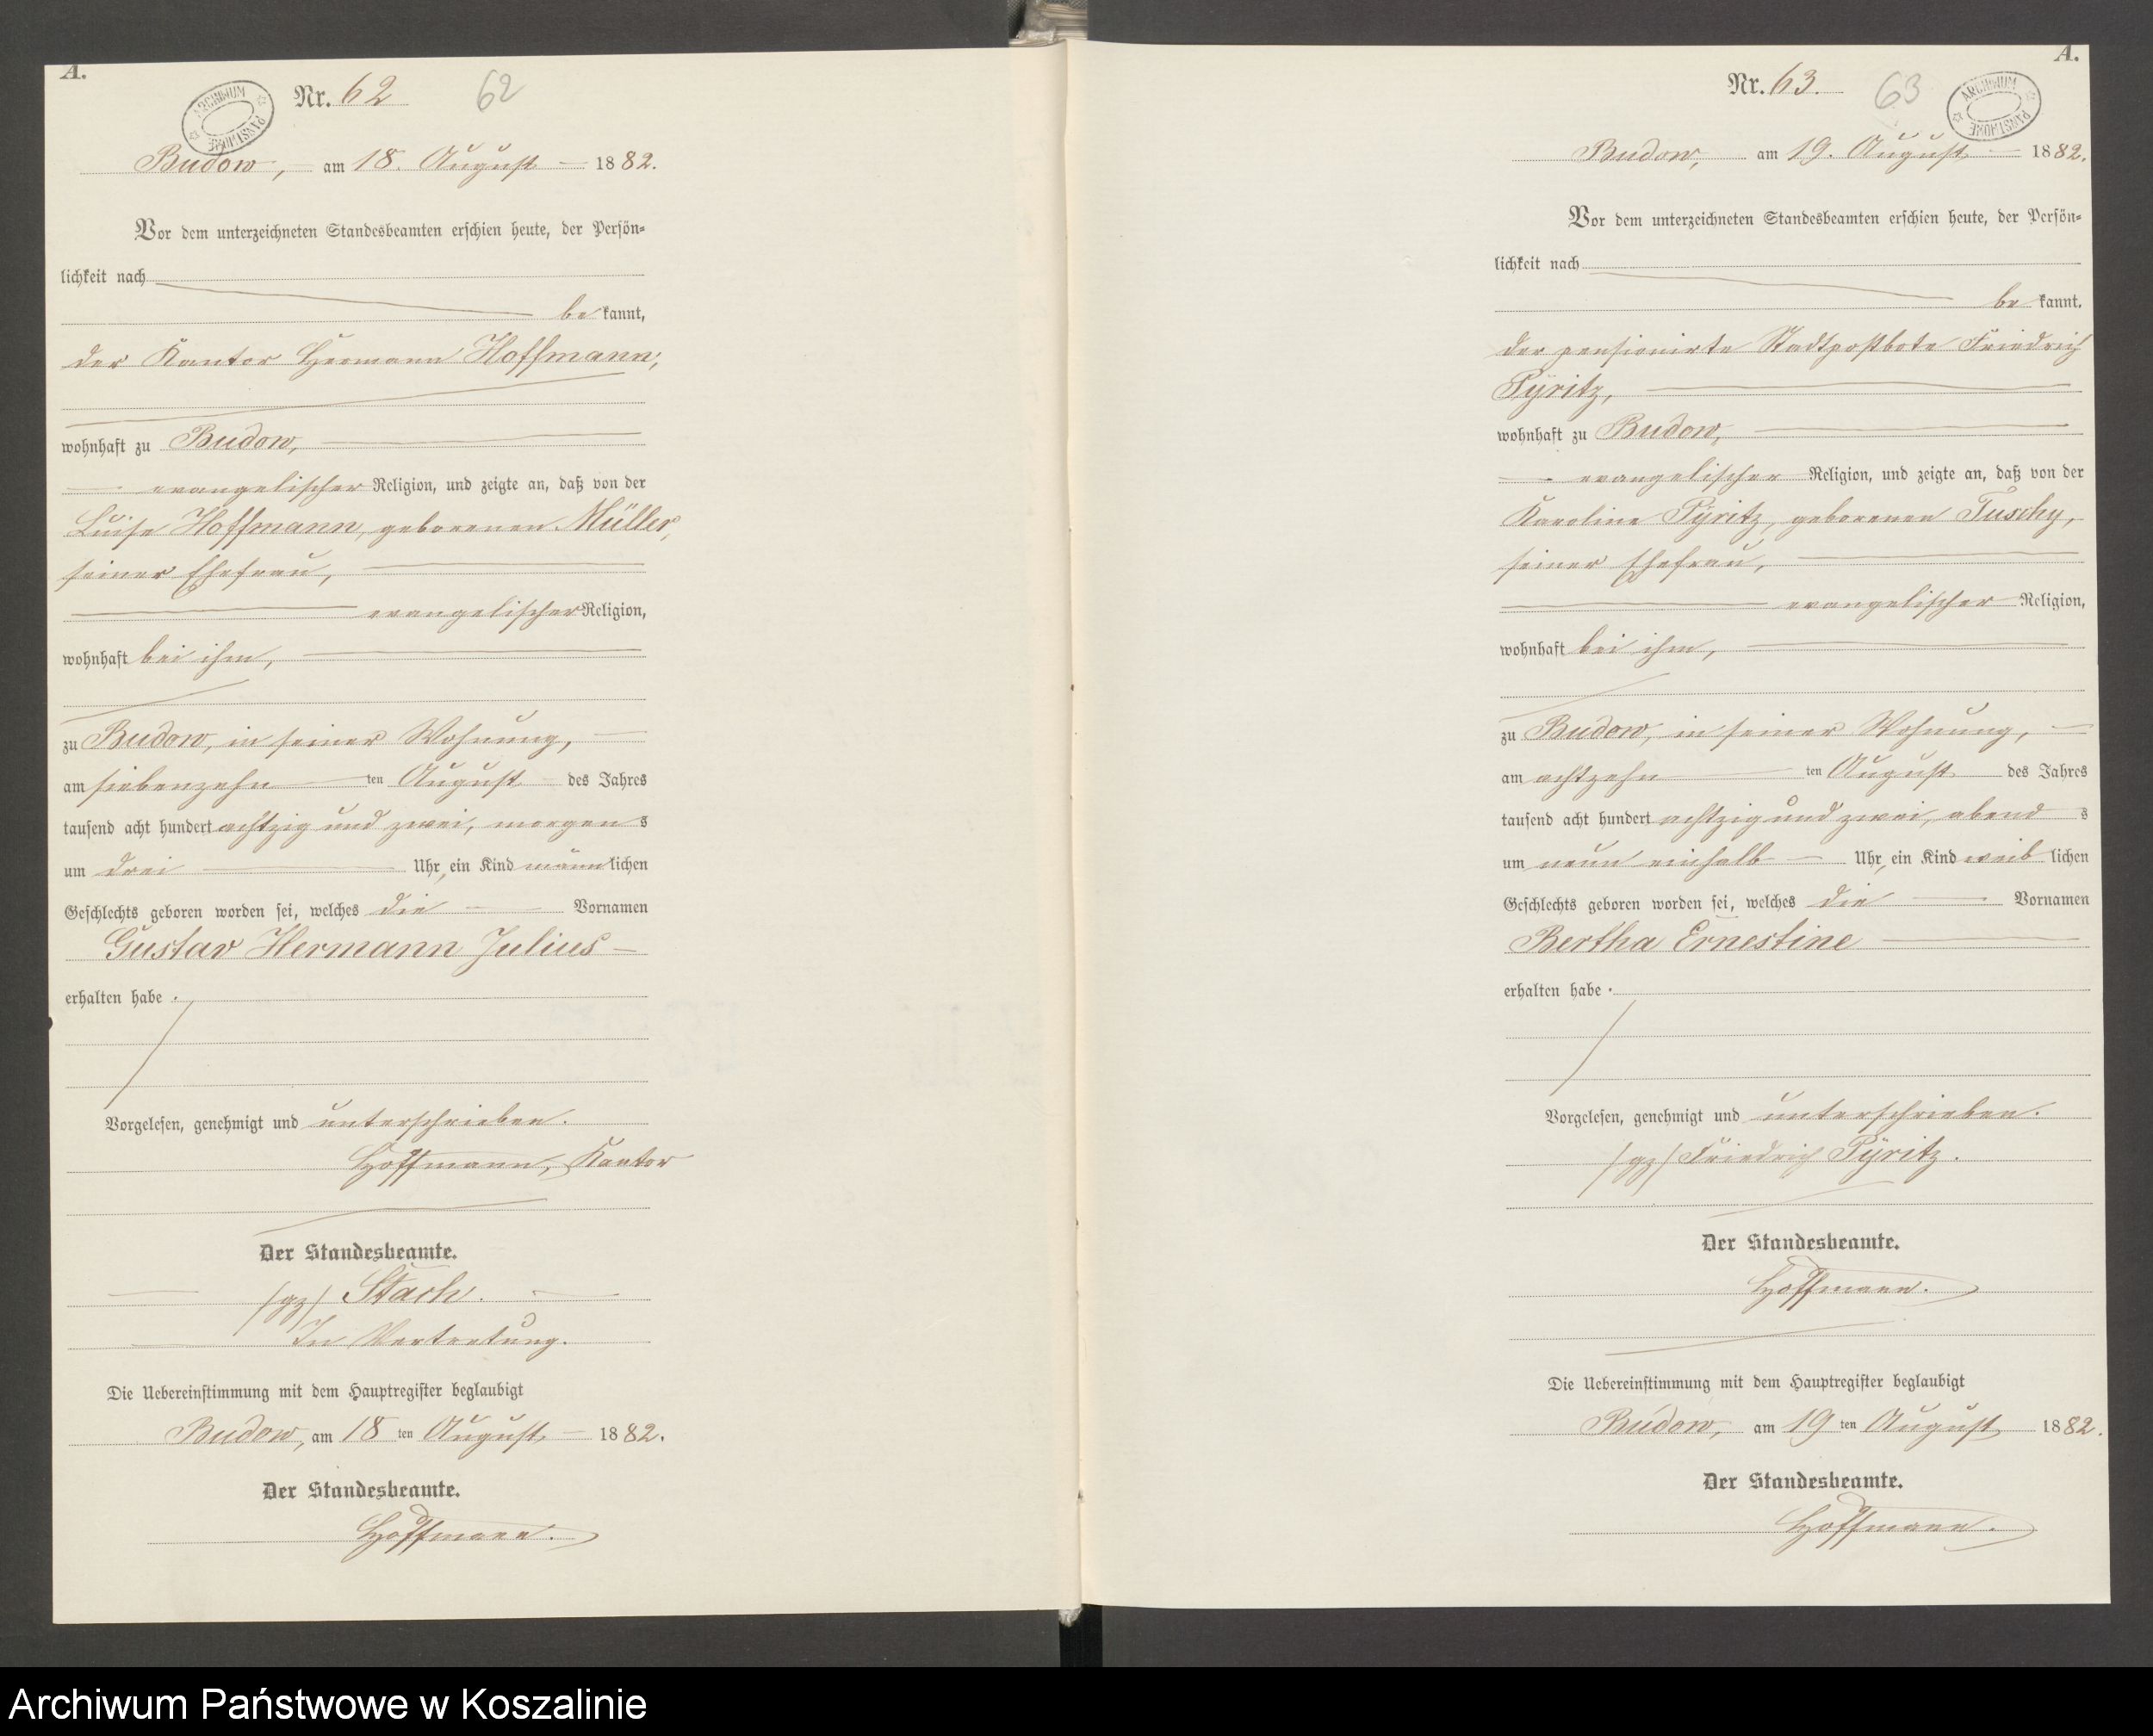 A.
ARCHIWUM PAŃSTWOWE
Nr. 62
62
Budow, am 18. August 1882.
Vor dem unterzeichneten Standesbeamten erschien heute, der Persön-
lichkeit nach
be kannt,
der Kantor Hermann Hoffmann,
wohnhaft zu Budow,
evangelischer Religion, und zeigte an, daß von der
Luise Hoffmann, geborenen Müller,
seiner Ehefrau,
evangelischer Religion,
wohnhaft bei ihm,
zu Budow, in seiner Wohnung,
am siebenzehn ten August des Jahres
tausend acht hundert achtzig und zwei, morgen s
um drei Uhr, ein Kind männlichen
Geschlechts geboren worden sei, welches die Vornamen
Gustav Hermann Julius
erhalten habe.
Vorgelesen, genehmigt und unterschrieben.
Hoffmann, Kantor
Der Standesbeamte.
/gz/ Stach.
In Vertretung.
Die Uebereinstimmung mit dem Hauptregister beglaubigt
Budow, am 18 ten August 1882.
Der Standesbeamte.
Hoffmann.
A.
Nr. 63.
63
ARCHIWUM PAŃSTWOWE
Budow, am 19. August 1882.
Vor dem unterzeichneten Standesbeamten erschien heute, der Persön-
lichkeit nach
be kannt.
der pensionirte Stadtpostbote Friedrich
Pÿritz,
wohnhaft zu Budow,
evangelischer Religion, und zeigte an, daß von der
Karoline Pÿritz, geborenen Tuschy,
seiner Ehefrau,
evangelischer Religion,
wohnhaft bei ihm,
zu Budow, in seiner Wohnung,
am achtzehn ten August des Jahres
tausend acht hundert achtzig und zwei, abend s
um neun einhalb Uhr, ein Kind weib lichen
Geschlechts geboren worden sei, welches die Vornamen
Bertha Ernestine
erhalten habe.
Vorgelesen, genehmigt und unterschrieben.
/gz/ Friedrich Pÿritz.
Der Standesbeamte.
Hoffmann.
Die Uebereinstimmung mit dem Hauptregister beglaubigt
Budow, am 19 ten August 1882.
Der Standesbeamte.
Hoffmann.
Archiwum Państwowe w Koszalinie